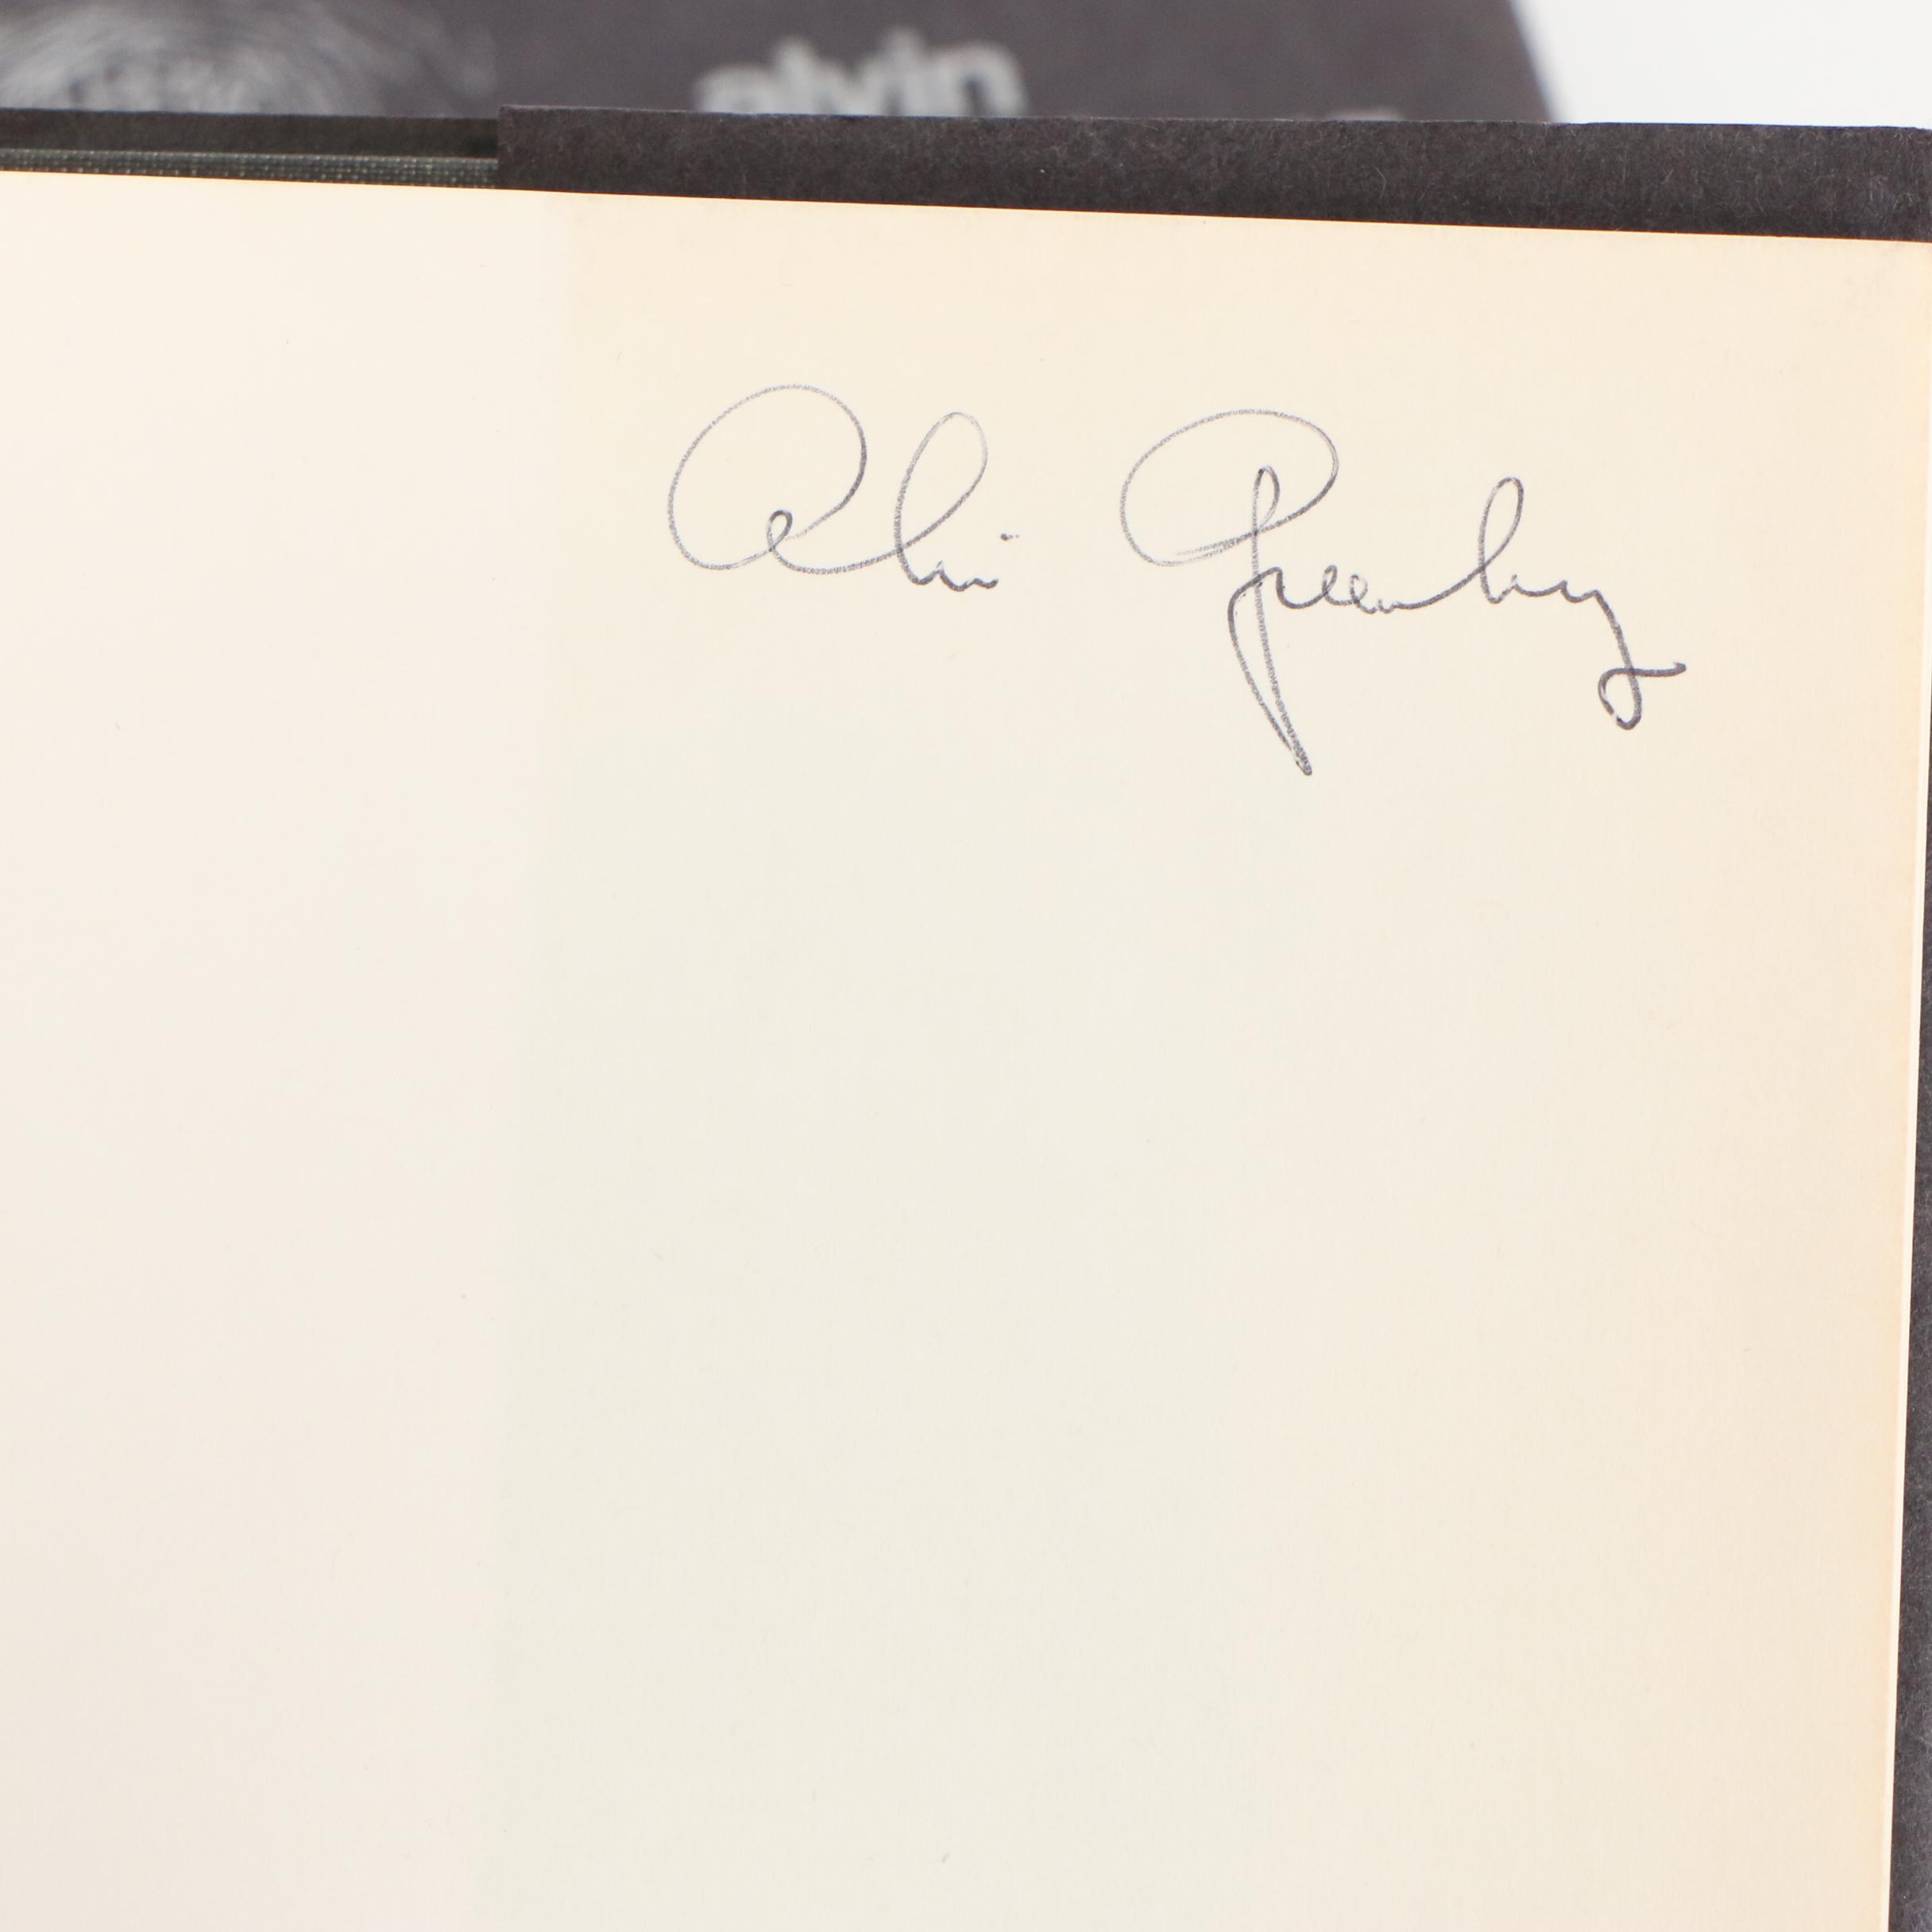 alvin
Alvin Greenberg